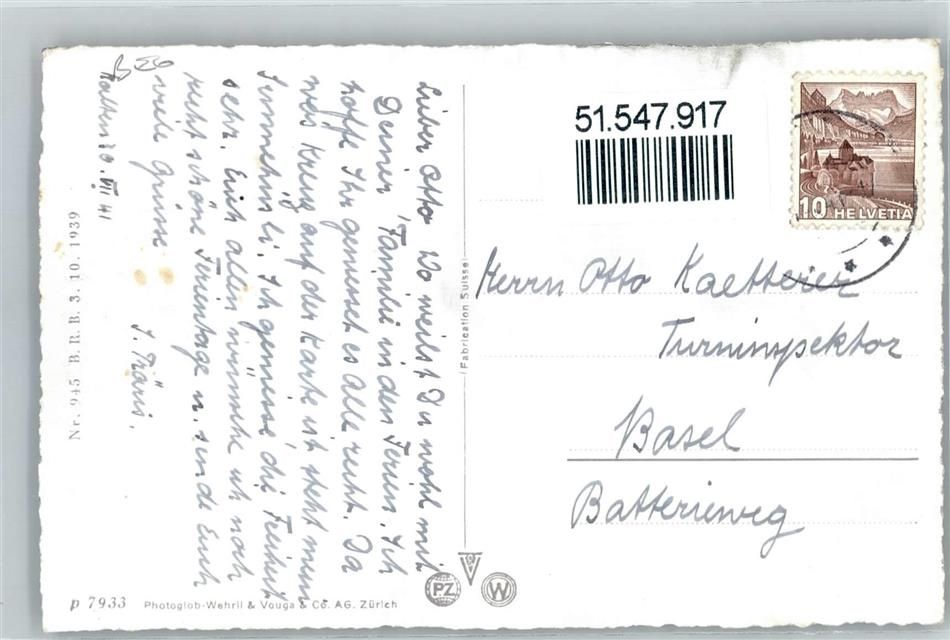 Lieber Otto Wo weilst Du wohl mit
Deiner Familie in den Ferien. Ich
hoffe Ihr geniesset es Alle recht. Da
wo's Kreuz auf der Karte ist steht mein
Ich geniesse die Freiheit
sehr. Euch allen wünsche ich noch
recht schöne Ferientage u. sende Euch
viele Grüsse
20. VII 41
51.547.917
10 HELVETIA
Herrn Otto Kaetterer
Turninspektor
Basel
Batterieweg
Fabrication Suisse
PZ
W
Nr. 945 B. R. B. 3. 10. 1939
p 7933 Photoglob-Wehrli & Vouga & Co. AG. Zürich